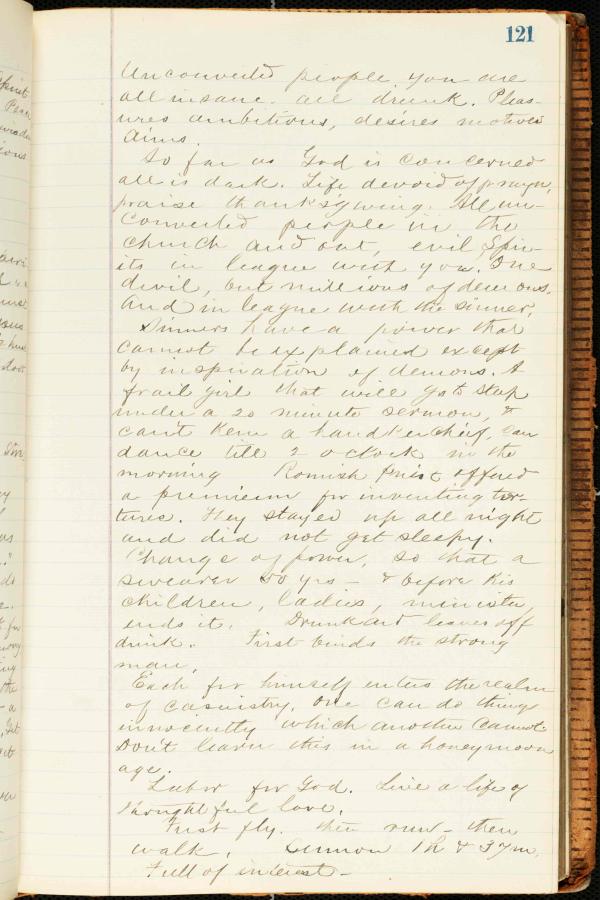 121
Unconverted people, you are
all insane. all drunk. Pleas-
ures ambitions, desires motives
Aims.
So far as God is concerned
all is dark. Life devoid of prayer,
praise thanksgiving. All un-
converted people in the
church and out, evil Spir-
its in league with you. One
devil, but millions of demons.
And in league with the sinner.
Sinners have a power that
cannot be explained except
by inspiration of demons. A
frail girl that will go to sleep
under a 20 minute sermon, &
can't hem a handkerchief, can
dance till 2 o clock in the
morning Romish Priest offered
a premium for inventing tor-
tures. They stayed up all night
and did not get sleepy.
Change of power, so that a
swearer 50 yrs - & before his
children, ladies, minister,
ends it. Drunkard leaves off
drink. First binds the strong
man.
Each for himself enters the realm
of casuistry, one can do things
innocently which another cannot.
Don't learn this in a honeymoon
age.
Labor for God. Live a life of
thoughtful love.
First fly. then run - then
walk. Sermon 1h & 37m.
Full of interest -